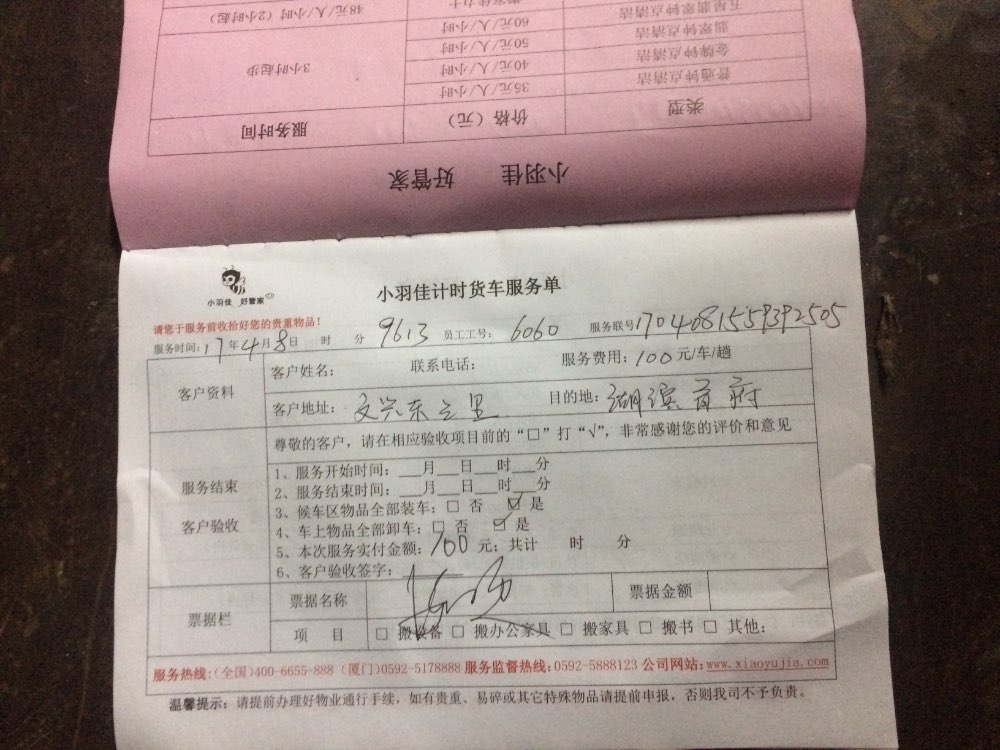 搬家佳力士 48元/人/小时（2小时起）
五星翡翠钟点清洁
翡翠钟点清洁 60元/人/小时
金牌钟点清洁 50元/人/小时 3小时起步
普通钟点清洁 40元/人/小时
35元/人/小时
类型 价格（元） 服务时间
小羽佳 好管家
小羽佳 好管家
小羽佳计时货车服务单
请您于服务前收拾好您的贵重物品！
服务时间：17年4月8日 时 分 9613 员工工号：6060 服务联号1704081559392505
客户资料
客户姓名： 联系电话： 服务费用：100元/车/趟
客户地址：文兴东三里 目的地：湖滨首府
服务结束
客户验收
尊敬的客户，请在相应验收项目前的“□”打“√”，非常感谢您的评价和意见
1、服务开始时间：___月___日___时___分
2、服务结束时间：___月___日___时___分
3、候车区物品全部装车：□ 否 ☑ 是
4、车上物品全部卸车：□ 否 ☑ 是
5、本次服务实付金额：100 元；共计 时 分
6、客户验收签字：
票据栏
票据名称 票据金额
项 目 □ 搬设备 □ 搬办公家具 □ 搬家具 □ 搬书 □ 其他：
服务热线：(全国)400-6655-888 (厦门)0592-5178888 服务监督热线：0592-5888123 公司网站：www.xiaoyujia.com
温馨提示：请提前办理好物业通行手续，如有贵重、易碎或其它特殊物品请提前申报，否则我司不予负责。